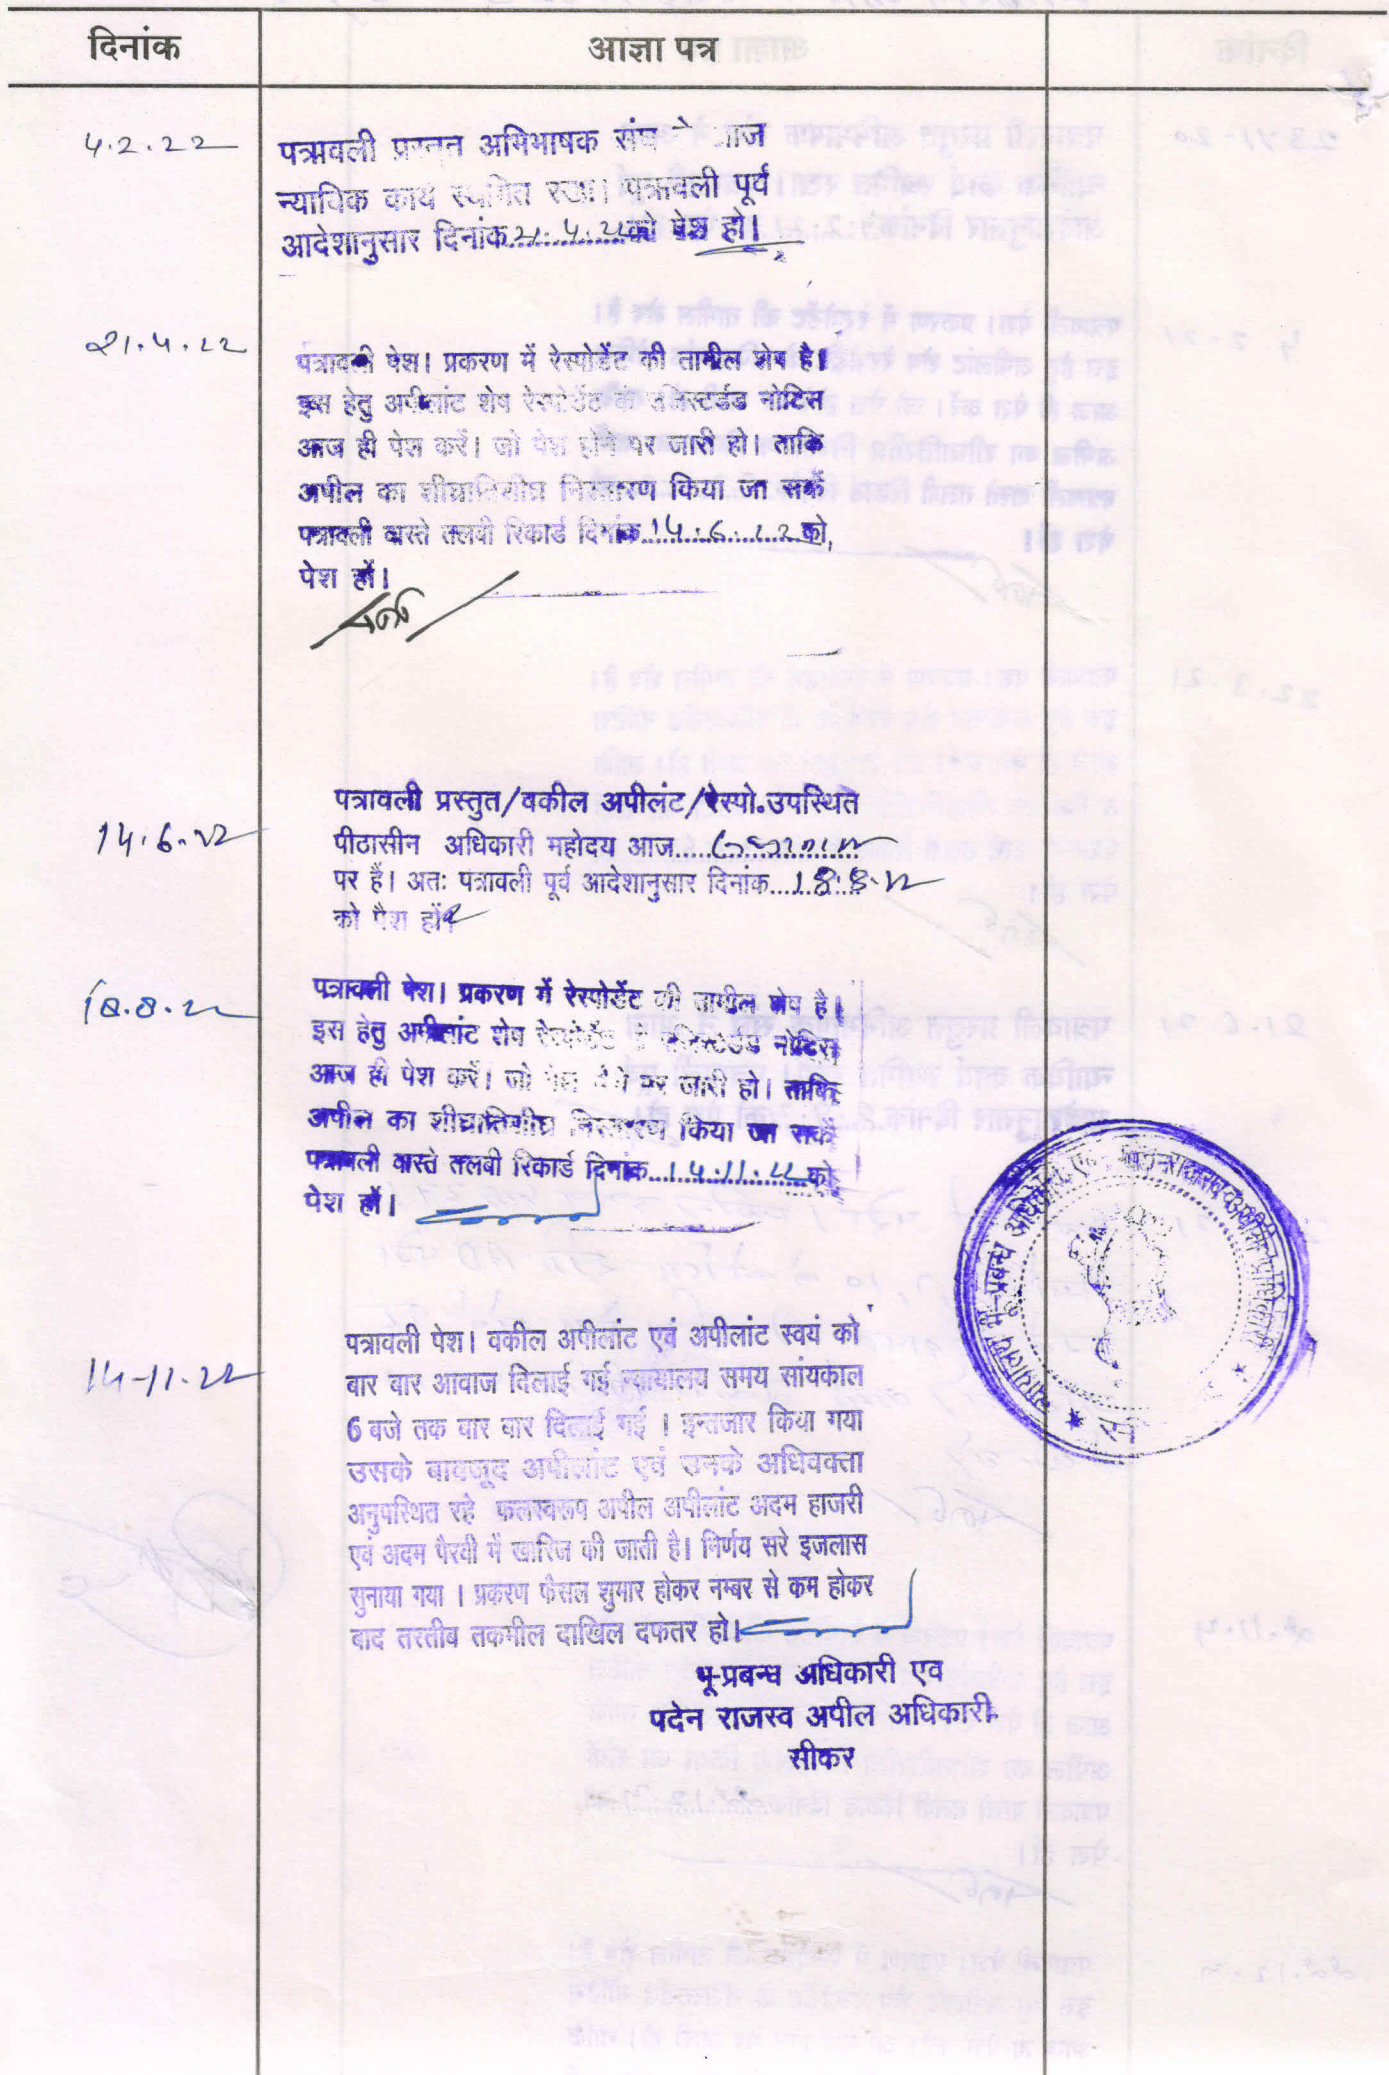 दिनांक
आज्ञा पत्र
4.2.22
पत्रावली प्रस्तुत अभिभाषक संघ आज
न्यायिक कार्य स्थगित रखा। पत्रावली पूर्व
आदेशानुसार दिनांक 21.4.22 को पेश हो।
21.4.22
पत्रावली पेश। प्रकरण में रेस्पोडेंट की तामील शेष है।
इस हेतु अपीलांट शेष रेस्पोडेंट के रजिस्टर्डड नोटिस
आज ही पेश करें। जो पेश होने पर जारी हो। ताकि
अपील का शीघ्रातिशीघ्र निस्तारण किया जा सकें
पत्रावली वास्ते तलबी रिकार्ड दिनांक 14.6.22 को
पेश हों।
14.6.22
पत्रावली प्रस्तुत/वकील अपीलंट/रेस्पो.उपस्थित
पीठासीन अधिकारी महोदय आज
पर हैं। अतः पत्रावली पूर्व आदेशानुसार दिनांक 18.8.22
को पैश हों।
18.8.22
पत्रावली पेश। प्रकरण में रेस्पोडेंट की तामील शेष है।
इस हेतु अपीलांट शेष रेस्पोडेंट के रजिस्टर्डड नोटिस
आज ही पेश करें। जो पेश होने पर जारी हो। ताकि
अपील का शीघ्रातिशीघ्र निस्तारण किया जा सकें
पत्रावली वास्ते तलबी रिकार्ड दिनांक 14.11.22 को
पेश हों।
14-11.22
पत्रावली पेश। वकील अपीलांट एवं अपीलांट स्वयं को
बार बार आवाज दिलाई गई न्यायालय समय सांयकाल
6 बजे तक बार बार दिलाई गई । इन्तजार किया गया
उसके बावजूद अपीलांट एवं उनके अधिवक्ता
अनुपस्थित रहे फलस्वरूप अपील अपीलांट अदम हाजरी
एवं अदम पैरवी में खारिज की जाती है। निर्णय सरे इजलास
सुनाया गया । प्रकरण फैसल शुमार होकर नम्बर से कम होकर
बाद तरतीब तकमील दाखिल दफतर हो।
भू-प्रबन्ध अधिकारी एव
पदेन राजस्व अपील अधिकारी
सीकर